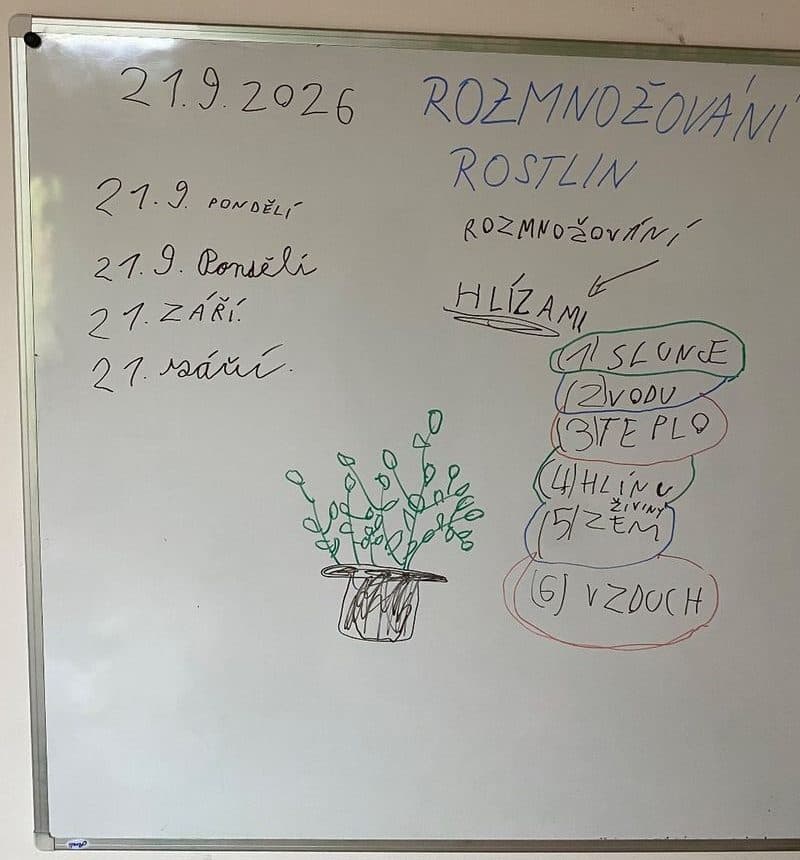 21.9.2026
21.9. PONDĚLÍ
21.9. Pondělí
21. ZÁŘÍ.
21. září.
ROZMNOŽOVÁNÍ
ROSTLIN
ROZMNOŽOVÁNÍ
HLÍZAMI
(1) SLUNCE
(2) VODU
(3) TEPLO
(4) HLÍNU
ŽIVINY
(5) ZEMÍ
(6) VZDUCH